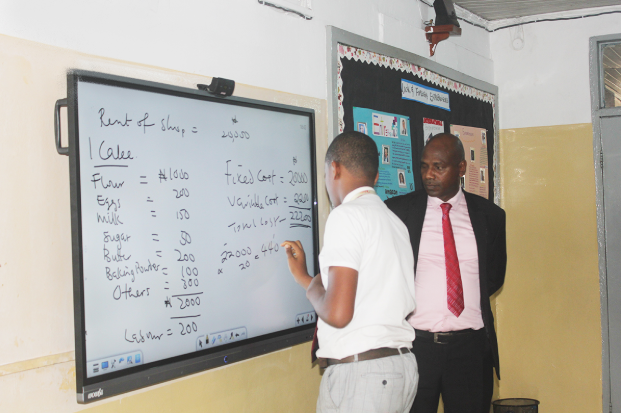 Rent of Shop = ₦ 20,000
1 Cake
Flour = ₦1000
Eggs = 200
Milk = 150
Sugar = 50
= 200
Baking = 100
Others = 300
₦2000
Labour = 200
₦
Fixed Cost = 20000
Variable Cost =
Total Cost - 22200
22000 = 440
× 20